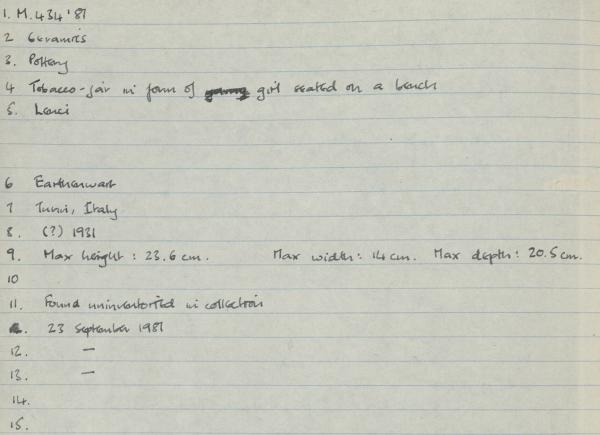 1. M.434'87
2 Ceramics
3. Pottery
4 Tobacco-jar in form of young girl seated on a bench
5. Lenci
6 Earthenware
7 Turin, Italy
8. (?) 1931
9. Max height : 23.6 cm. Max width : 14 cm. Max depth : 20.5 cm.
10
11. Found uninventoried in collection
23 September 1987
12. —
13. —
14.
15.